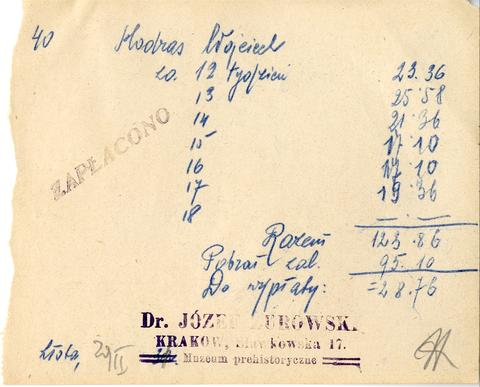 40 Madras Wojciech
za. 12 tydzień 23.36
13 25.58
14 21.36
15 17.10
16 17.10
17 19.36
18 — . —
ZAPŁACONO
Razem 123.86
Pobrał zal. 95.10
Do wypłaty: =28.76
Dr. JÓZEF ŻUROWSKI.
KRAKÓW, Sławkowska 17.
Muzeum prehistoryczne
Złota, 29/II